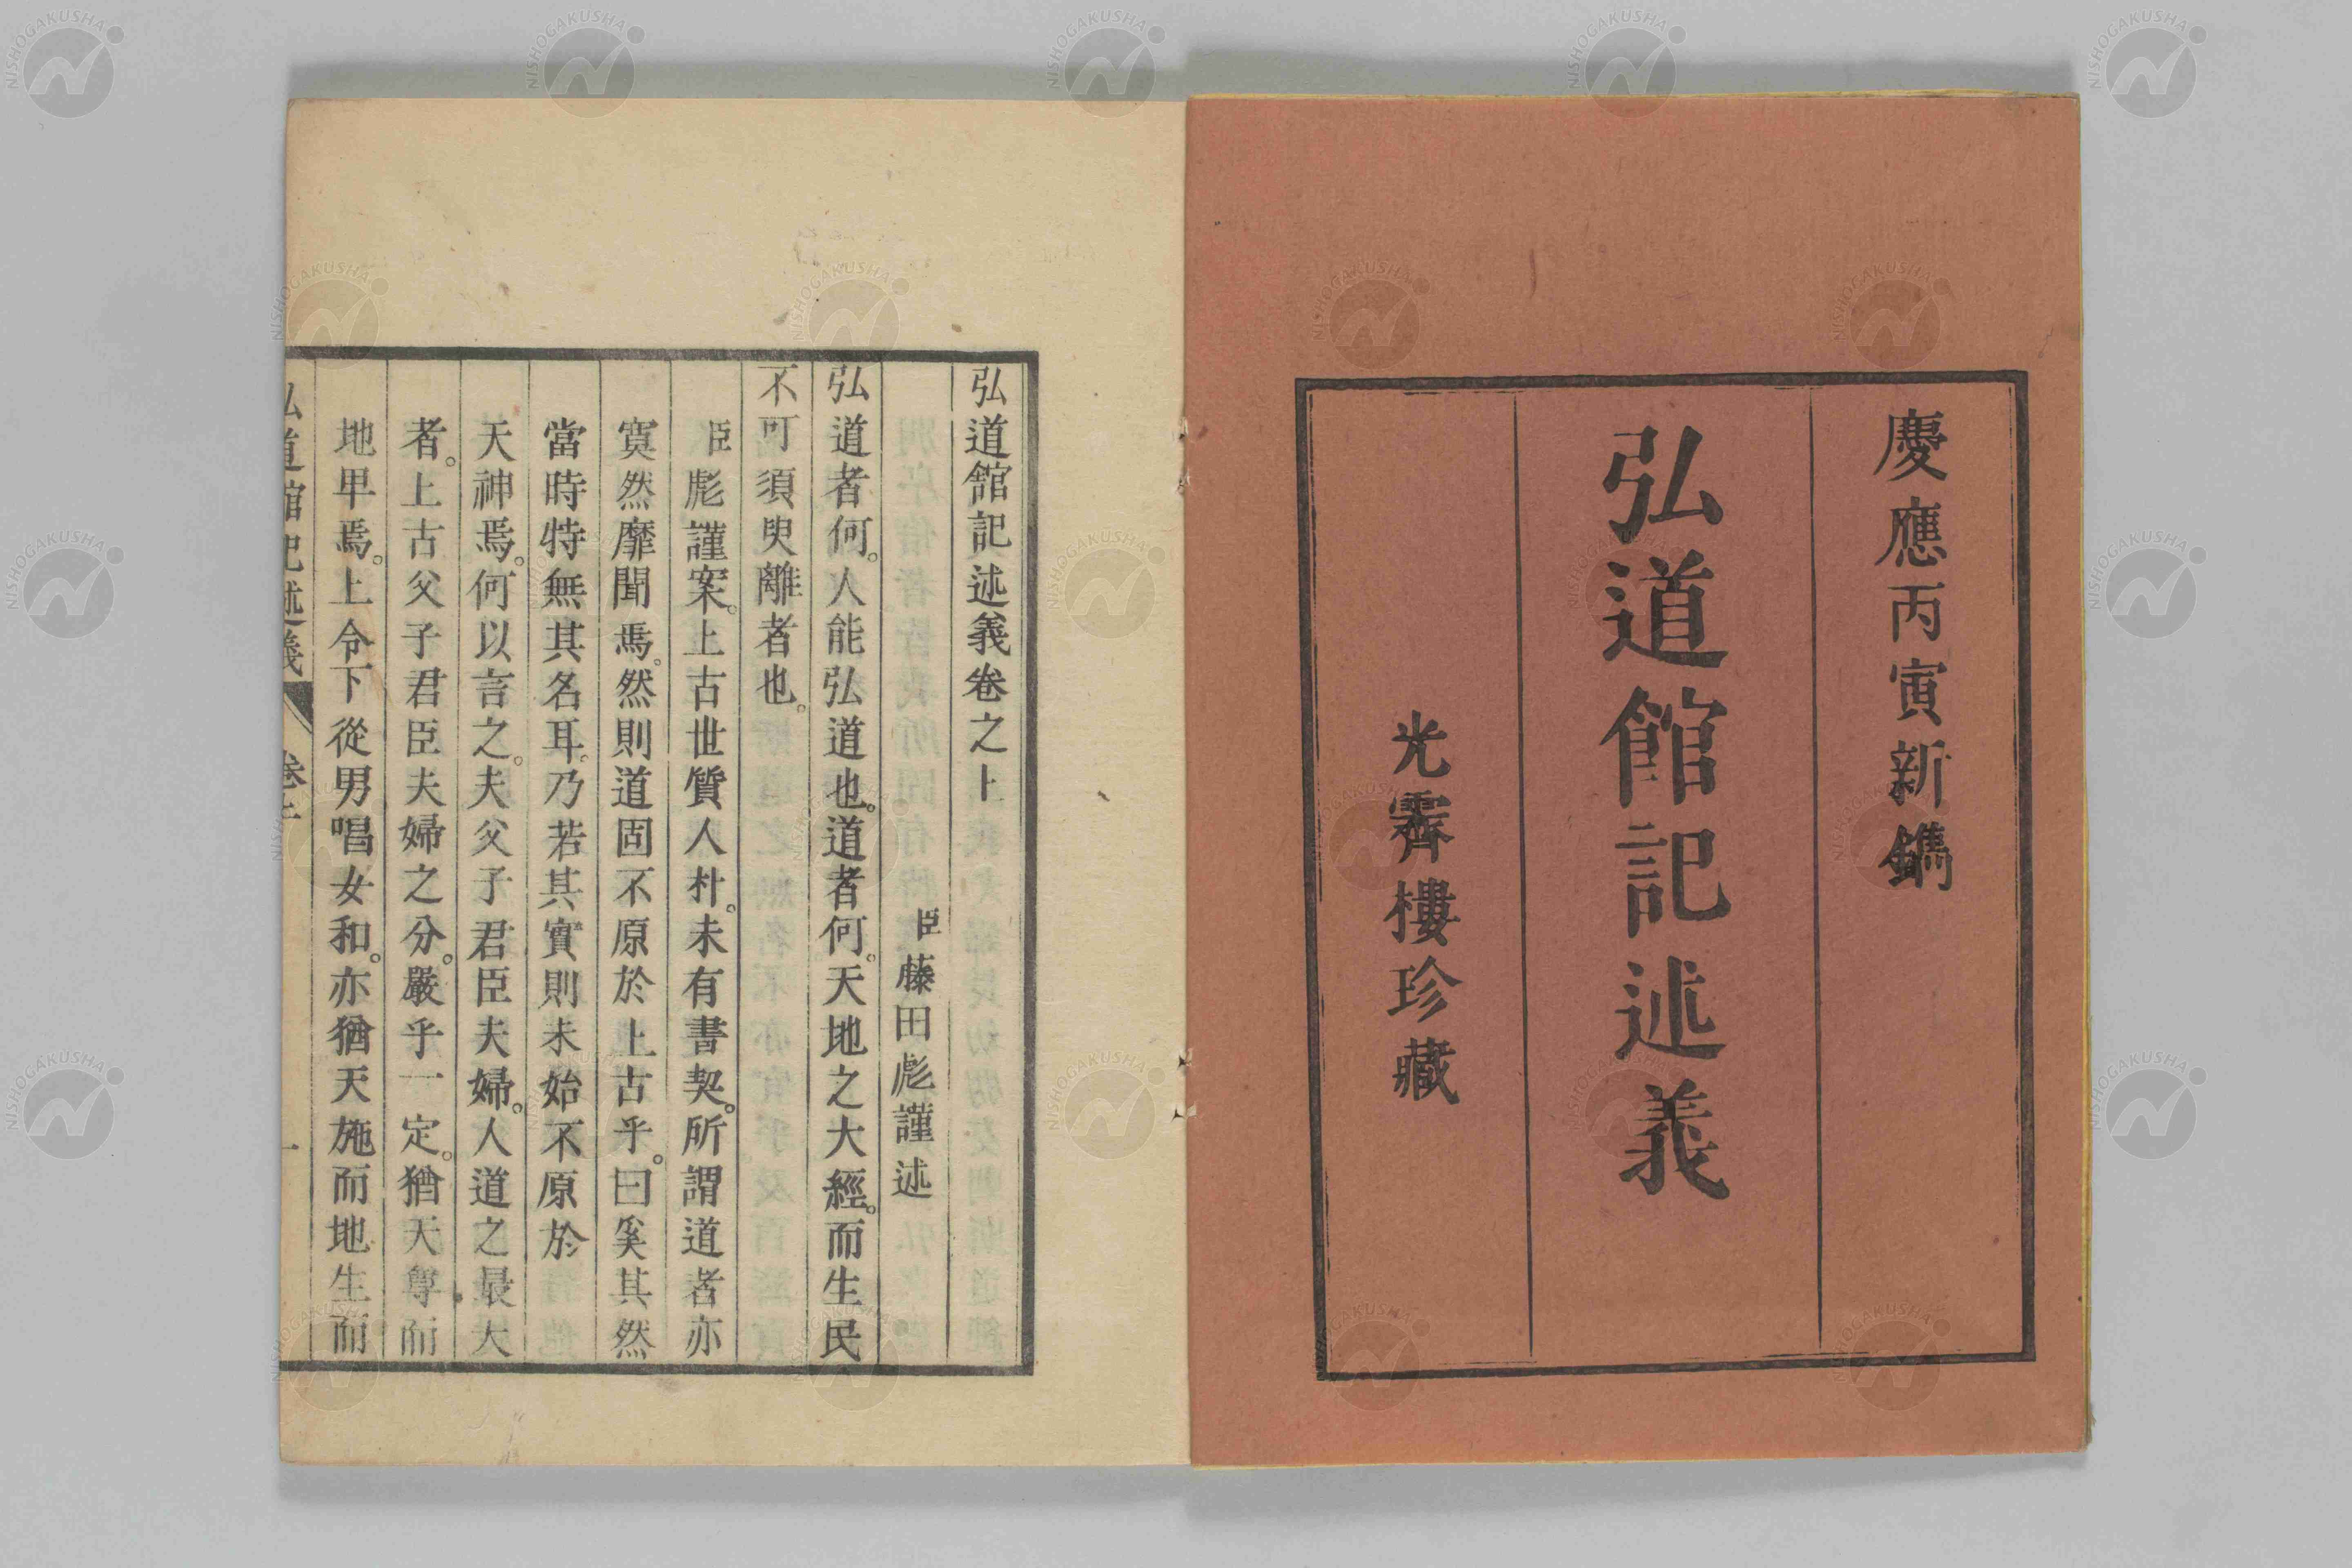 慶應丙寅新鐫
弘道館記述義
光霽樓珍藏
弘道館記述義卷之上
臣藤田彪謹述
弘道者何。人能弘道也。道者何。天地之大經。而生民
不可須臾離者也。
臣彪謹案。上古世質人朴。未有書契。所謂道者亦
寞然靡聞焉。然則道固不原於上古乎。曰奚其然
當時特無其名耳。乃若其實則未始不原於
天神焉。何以言之。夫父子君臣夫婦。人道之最大
者。上古父子君臣夫婦之分。嚴乎一定。猶天尊而
地卑焉。上令下從男唱女和。亦猶天施而地生而
弘道館記述義 卷上 一
NISHOGAKUSHA